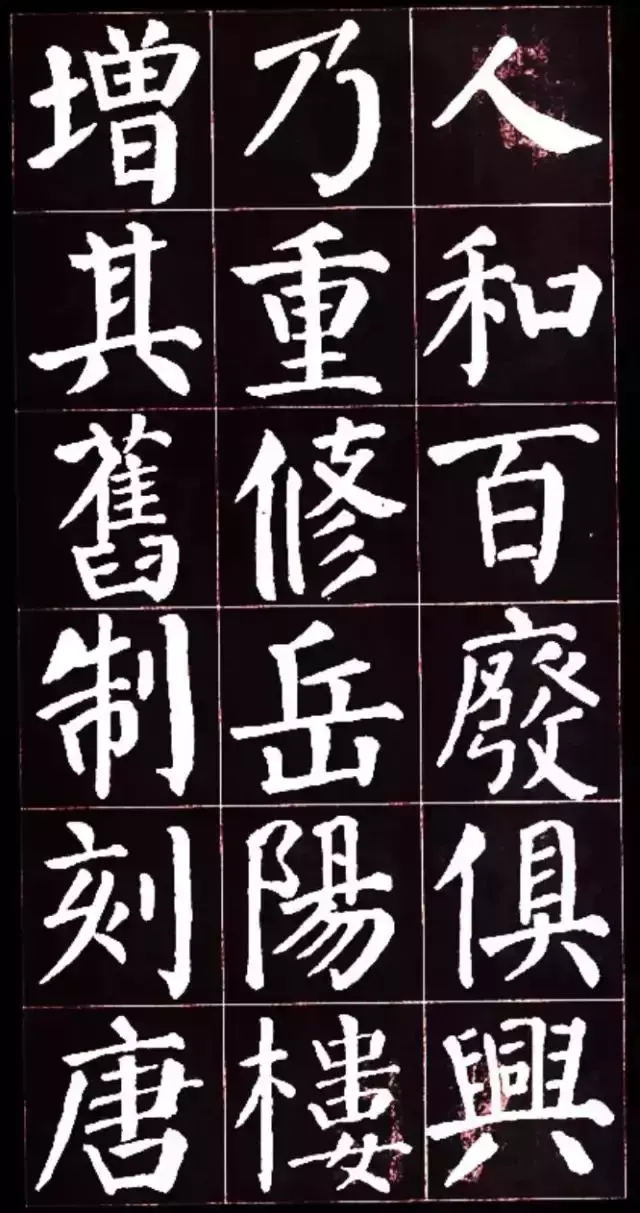 人和百廢俱興
乃重修岳陽樓
増其舊制刻唐